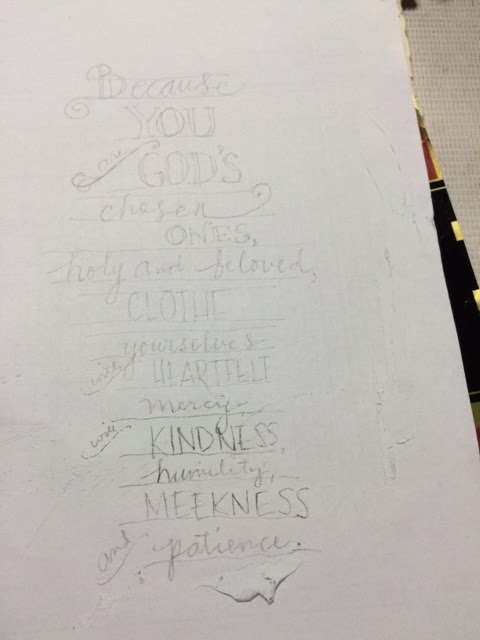 Because
YOU
are GOD'S
chosen
ONES,
holy and beloved,
CLOTHE
yourselves
with HEARTFELT
mercy,
with KINDNESS,
humility,
MEEKNESS
and patience.